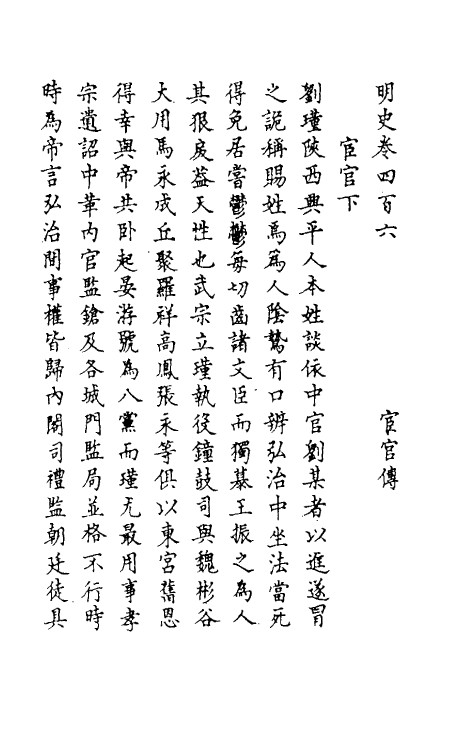 明史卷四百六　宦官傳
宦官下
劉瑾陝西興平人本姓談依中官劉某者以進遂冒
之詭稱賜姓焉爲人陰鷙有口辨弘治中坐法當死
得免居嘗鬱鬱每切齒諸文臣而獨慕王振之為人
其狠戾葢天性也武宗立瑾執役鐘鼓司與魏彬谷
大用馬永成丘聚羅祥高鳳張永等俱以東宮舊恩
得幸與帝共卧起晏游號為八黨而瑾尤最用事孝
宗遺詔中革內官監鎗及各城門監局並格不行時
時為帝言弘治間事權皆歸內閣司禮監朝廷徒具